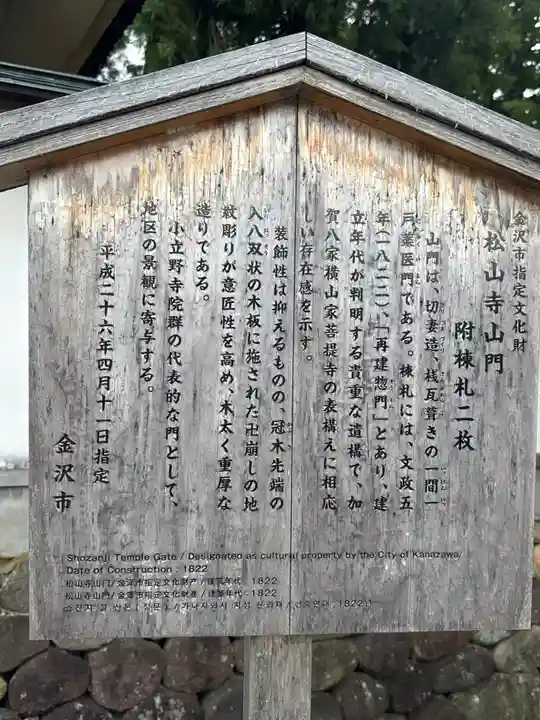 金沢市指定文化財
松山寺山門
附棟札二枚
山門は、切妻造、桟瓦葺きの一間一
戸薬医門である。棟札には、文政五
年(一八二二)、「再建惣門」とあり、建
立年代が判明する貴重な遺構で、加
賀八家横山家菩提寺の表構えに相応
しい存在感を示す。
装飾性は抑えるものの、冠木先端の
入八双状の木板に施された卍崩しの地
紋彫りが意匠性を高め、木太く重厚な
造りである。
小立野寺院群の代表的な門として、
地区の景観に寄与する。
平成二十六年四月十一日指定
金沢市
Shozanji Temple Gate / Designated as cultural property by the City of Kanazawa/
Date of Construction : 1822
松山寺山门/金泽市指定文化财产/建筑年代 : 1822
松山寺山門/金澤市指定文化財產/建築年代 : 1822
쇼잔지 절 산몬 ( 정문 ) / 가나자와시 지정 문화재 / 건축연대 : 1822년